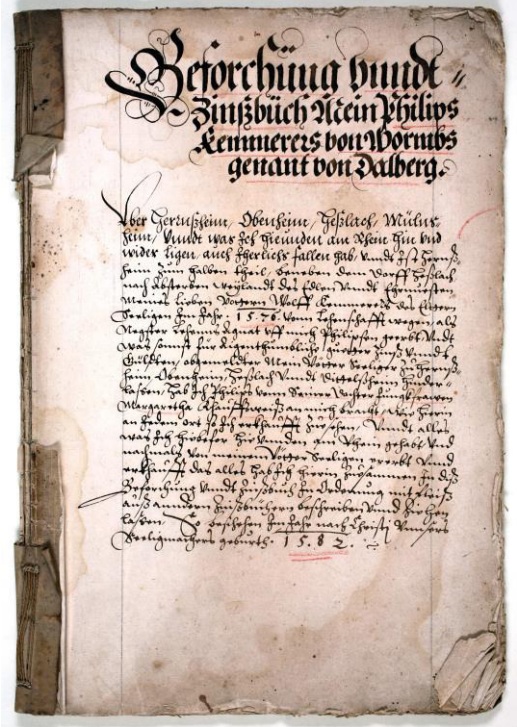 Beforchüng vnndt
Zinßbüch Mein Philips
Kemmerers von Wormbs
genant von Dalberg.
Vber Herrnßheim, Obenheim, Heßlach, Mülns-
heim, vnndt was Ich hieunden am Rhein hin vnd
wider ligen, auch Jherlichs fallen hab, vnndt Ist Herrnß-
heim zum halben theil, beneben dem Dorff Heßlach
nach absterben weylandt des Edlen vnndt Ehrnuesten
Meines lieben Vettern Wolff Kemmerers des
Seeligen Im Jahr, 1576. vom Lehenschafft wegen, als
Negster Lehens Agnat vff mich Philipsen geerbt vndt
was sonnst für eigenthumbliche guetter Zinß vnndt
Gülden, obgemeldter Mein Vetter Seeliger zu Herrnß-
heim Obenheim, Heßlach vnndt Dittelßheim hinder-
laßen, hab Ich Philips vonn Seiner Dochter Jungfrawen
Margaretha an mich bracht, wie hierin
an Jedem ort vndt alles
was Ich hiebefor hieunden am Rhein gehabt vnd
nachmals von meinem Vetter Seeligen ererbt vnnd
erkhaufft das alles hab Ich hierin zusammen In diß
Beforchung vnndt Zinßbuch In Ordenung mit fleiß
auß anndern Zinßbüchern beschreiben vnnd ziehen
laßen. So beschehen Im Jahr nach Christi vnnsers
Seeligmachers geburth. 1582.